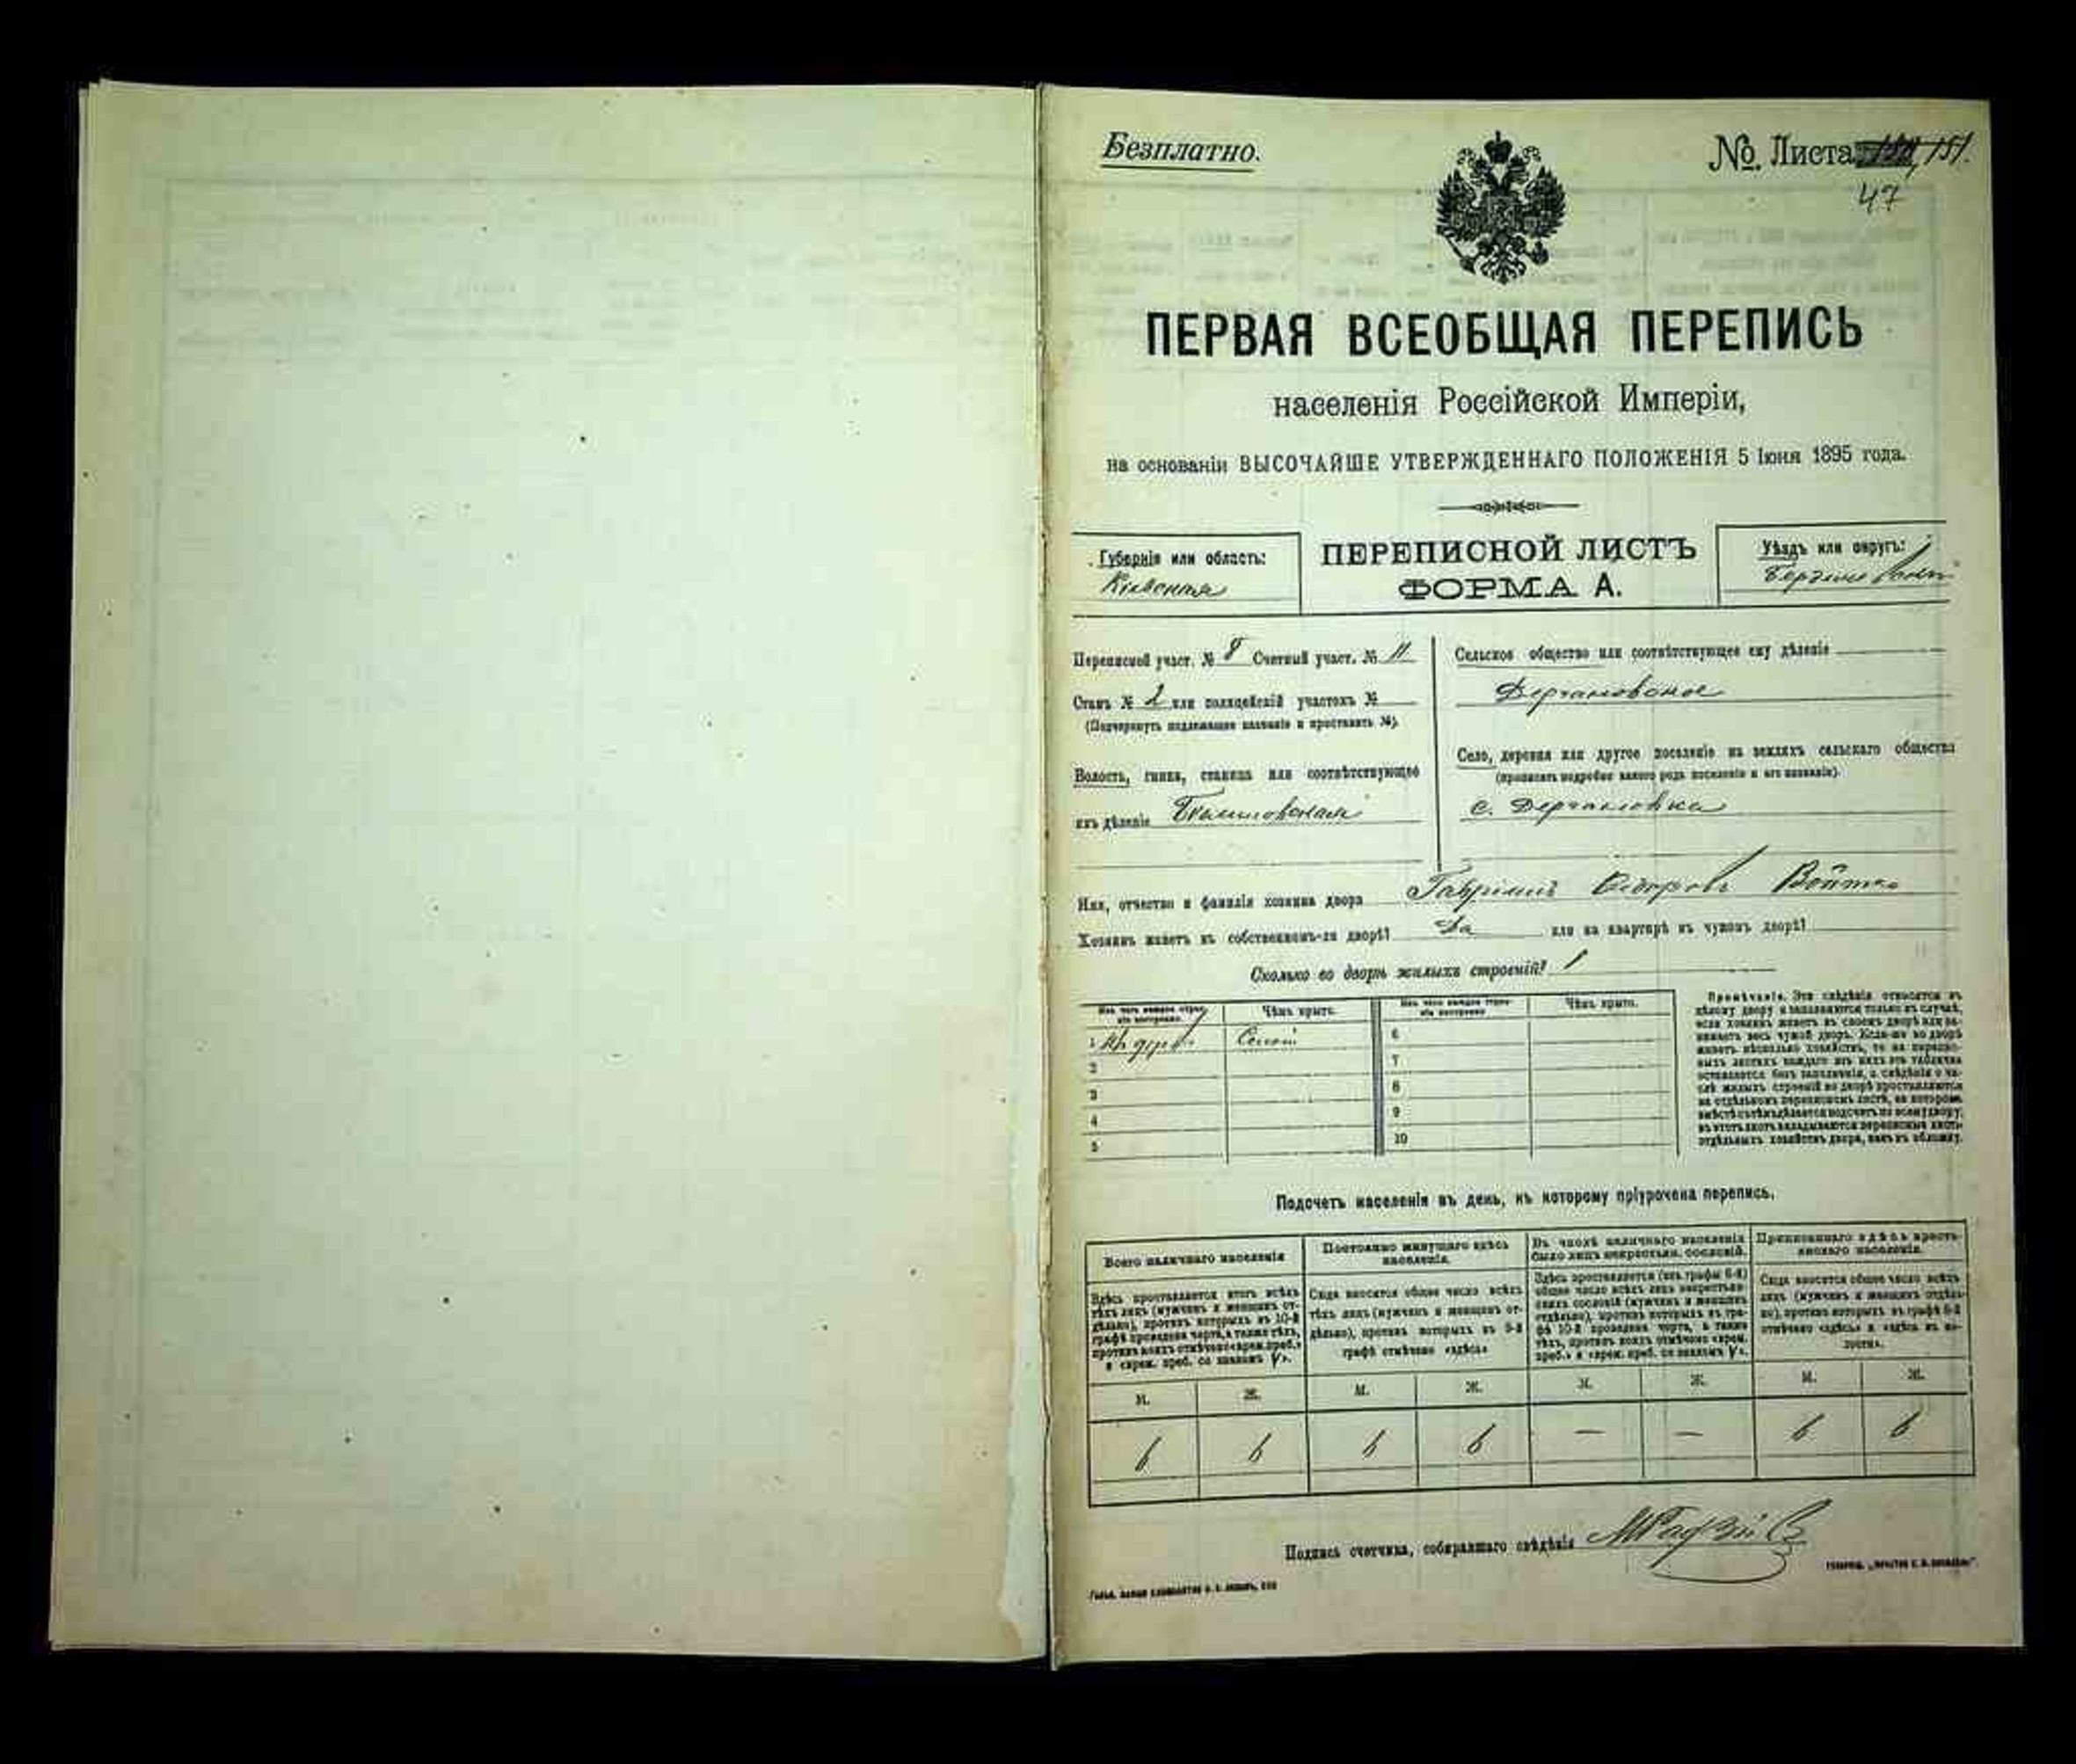 Безплатно.
№ Листа 151.
47
ПЕРВАЯ ВСЕОБЩАЯ ПЕРЕПИСЬ
населенія Россійской Имперіи,
на основаніи ВЫСОЧАЙШЕ УТВЕРЖДЕННАГО ПОЛОЖЕНІЯ 5 Іюня 1895 года.
Губернія или область:
Кіевская
ПЕРЕПИСНОЙ ЛИСТЪ
ФОРМА А.
Уѣздъ или округъ:
Переписной участ. № 8 Счетный участ. № 11
Станъ № 2 или полицейскій участокъ №
(Подчеркнуть подлежащее названіе и проставить №).
Волость, гмина, станица или соотвѣтствующее
имъ дѣленіе
Сельское общество или соотвѣтствующее ему дѣленіе
Дергановское
Село, деревня или другое поселеніе на земляхъ сельскаго общества
(прописать подробно какого рода поселеніе и его названіе).
с. Дергановка
Имя, отчество и фамилія хозяина двора Гавріилъ Сидоровъ Войтко
Хозяинъ живетъ въ собственномъ-ли дворѣ? Да или на квартирѣ въ чужомъ дворѣ?
Сколько во дворѣ жилыхъ строеній? 1
Изъ чего каждое строе-
ніе построено.
Чѣмъ крыто.
Изъ чего каждое строе-
ніе построено
Чѣмъ крыто.
1 Изъ дерев. Солом.
2
3
4
5
6
7
8
9
10
Примѣчаніе. Эти свѣдѣнія относятся къ
цѣлому двору и заполняются только въ случаѣ,
если хозяинъ живетъ въ своемъ дворѣ или за-
нимаетъ весь чужой дворъ. Если-же во дворѣ
живетъ нѣсколько хозяйствъ, то на перепис-
ныхъ листахъ каждаго изъ нихъ эта табличка
оставляется безъ заполненія, а свѣдѣнія о чи-
слѣ жилыхъ строеній во дворѣ проставляются
на отдѣльномъ переписномъ листѣ, на которомъ
вмѣстѣ съ тѣмъ дѣлается подсчетъ по всему двору;
въ этотъ листъ вкладываются переписные листы
отдѣльныхъ хозяйствъ двора, какъ въ обложку.
Подсчетъ населенія въ день, къ которому пріурочена перепись.
Всего наличнаго населенія
Здѣсь проставляется итогъ всѣхъ
тѣхъ лицъ (мужчинъ и женщинъ от-
дѣльно), противъ которыхъ въ 10-й
графѣ проведена черта, а также тѣхъ,
противъ коихъ отмѣчено «врем. преб.»
и «врем. преб. со знакомъ V».
Постоянно живущаго здѣсь
населенія.
Сюда вносится общее число всѣхъ
тѣхъ лицъ (мужчинъ и женщинъ от-
дѣльно), противъ которыхъ въ 9-й
графѣ отмѣчено «здѣсь»
Въ числѣ наличнаго населенія
было лицъ некрестьян. сословій.
Здѣсь проставляется (изъ графы 6-й)
общее число всѣхъ лицъ некрестьян-
скихъ сословій (мужчинъ и женщинъ
отдѣльно), противъ которыхъ въ гра-
фѣ 10-й проведена черта, а также
тѣхъ, противъ коихъ отмѣчено «врем.
преб.» и «врем. преб. со знакомъ V».
Приписаннаго здѣсь кресть-
янскаго населенія.
Сюда вносится общее число всѣхъ
лицъ (мужчинъ и женщинъ отдѣль-
но), противъ которыхъ въ графѣ 8-й
отмѣчено «здѣсь» и «здѣсь въ во-
лости».
М. Ж. М. Ж. М. Ж. М. Ж.
6 6 6 6 — — 6 6
Подпись счетчика, собиравшаго свѣдѣнія